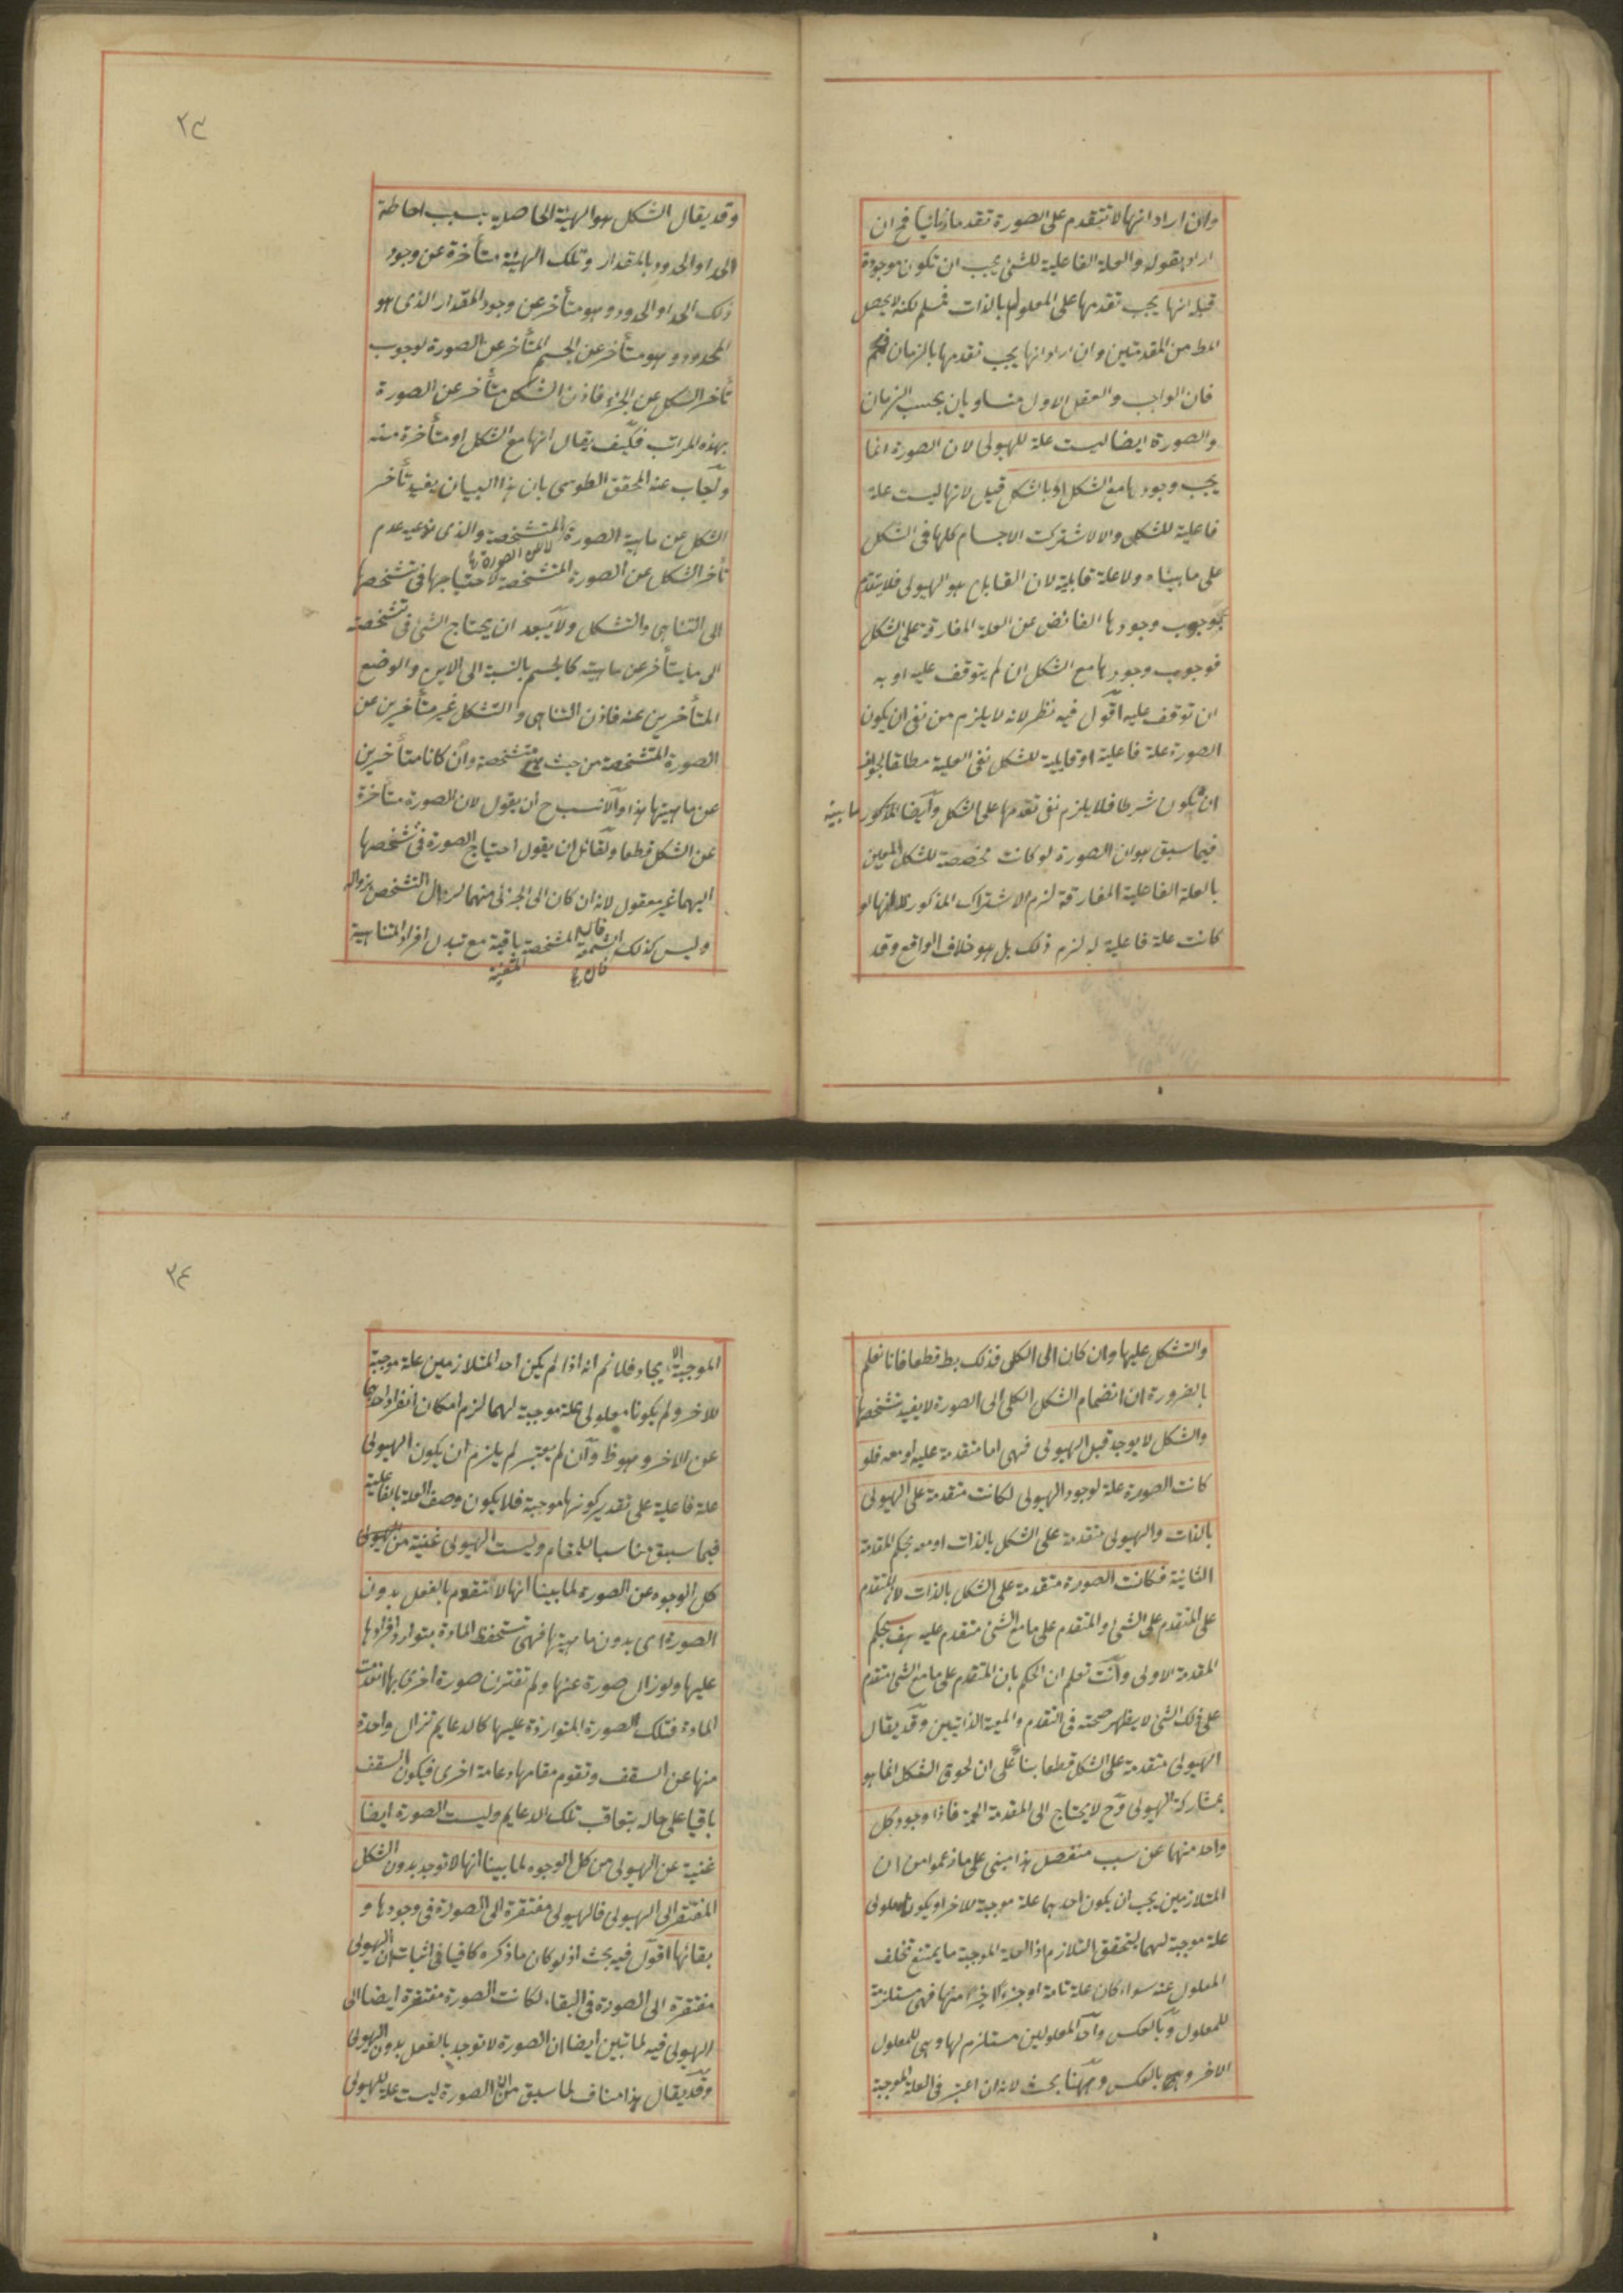 وان اراد انها لا تتقدم على الصورة تقدما زمانيا فح ان
اراد بقوله والعلة الفاعلية للشئ يجب ان تكون موجودة
قبله انها يجب تقدمها على المعلول بالذات فمسلم لكنه لا يحصل
المط من المقدمتين وان اراد انها يجب تقدمها بالزمان
فان الواجب والعقل الاول متساويان بحسب الزمان
والصورة ايضا ليست علة للهيولى لان الصورة انما
يجب وجودها مع الشكل او بالشكل قيل لانها ليست علة
فاعلية للشكل والا لاشتركت الاجسام كلها فى الشكل
على ما بيناه ولا علة قابلية لان القابل هو الهيولى فلا يتقدم
وجوب وجودها الفائض عن العلة المفارقة على الشكل
فوجوب وجودها مع الشكل ان لم يتوقف عليه او به
ان توقف عليه اقول فيه نظر لانه لا يلزم من نفى ان يكون
الصورة علة فاعلية او قابلية للشكل نفى العلية مطلقا لجواز
ان يكون شرطا فلا يلزم نفى تقدمها على الشكل وايضا المذكور
ما بينه
فيما سبق هو ان الصورة لو كانت مخصصة للشكل المعين
بالعلة الفاعلية المفارقة لزم الاشتراك المذكور لا انها لو
كانت علة فاعلية له لزم ذلك بل هو خلاف الواقع وقد
٣٣
وقد يقال الشكل هو الهيئة الحاصلة بسبب احاطة
الحد او الحدود بالمقدار وتلك الهيئة متأخرة عن وجود
ذلك الحد او الحدود وهو متأخر عن وجود المقدار الذى هو
المحدود وهو متأخر عن الجسم المتأخر عن الصورة لوجوب
تأخر الكل عن الجزء فاذن الشكل متأخر عن الصورة
بهذه المراتب فكيف يقال انها مع الشكل او متأخرة منه
ويجاب عنه المحقق الطوسى بان هذا البيان يفيد تأخر
الشكل عن ماهية الصورة المتشخصة والذى ندعيه عدم
تأخر الشكل عن الصورة المتشخصة لاحتياجها فى تشخصها
الى التناهى والتشكل ولا يبعد ان يحتاج الشئ فى تشخصه
الى ما يتأخر عن ماهيته كالجسم بالنسبة الى الاين والوضع
المتأخرين عنه فاذن التناهى والتشكل غير متأخرين عن
الصورة المتشخصة من حيث هى متشخصة وان كانا متأخرين
عن ماهيتها هذا والانسب ح ان يقول لان الصورة متأخرة
عن الشكل قطعا ولقائل ان يقول احتياج الصورة فى تشخصها
اليهما غير معقول لانه ان كان الى الجزئى منهما لزم زوال التشخص بزواله
وليس كذلك فان الشمعة المشخصة باقية مع تبدل افراد المتناهية
والتشكل عليها وان كان الى الكلى فذلك بط قطعا فانا نعلم
بالضرورة ان انضمام الشكل الكلى الى الصورة لا يفيد تشخصها
والشكل لا يوجد قبل الهيولى فهى اما متقدمة عليه او معه فلو
كانت الصورة علة لوجود الهيولى لكانت متقدمة على الهيولى
بالذات والهيولى متقدمة على الشكل بالذات او معه بحكم المقدمة
الثانية فكانت الصورة متقدمة على الشكل بالذات لان المتقدم
على المتقدم على الشئ والمتقدم على ما مع الشئ متقدم عليه هف بحكم
المقدمة الاولى وانت تعلم ان الحكم بان المتقدم على ما مع الشئ متقدم
على ذلك الشئ لا يظهر صحته فى التقدم والمعية الذاتيين وقد يقال
الهيولى متقدمة على الشكل قطعا بناء على ان لحوق الشكل انما هو
بمشاركة الهيولى وح لا يحتاج الى المقدمة فاذا وجود كل
واحد منهما عن سبب منفصل هذا مبنى على ما زعموا من ان
المتلازمين يجب ان يكون احدهما علة موجبة للاخر او يكونا معلولى
علة موجبة لهما ليتحقق التلازم اذ العلة الموجبة ما يمتنع تخلف
المعلول عنه سواء كان علة تامة او جزءا اخيرا منها فهى مستلزمة
للمعلول وبالعكس واحد المعلولين مستلزم لها وهى للمعلول
الاخر وبالعكس وههنا بحث لانه ان اعتبر فى العلة الموجبة
٣٤
الموجبة الايجاد فلانم انه اذا لم يكن احد المتلازمين علة موجبة
للاخر ولم يكونا معلولى علة موجبة لهما لزم امكان انفراد احدهما
عن الاخر وهو ظ وان لم يعتبر لم يلزم ان يكون الهيولى
علة فاعلية على تقدير كونها موجبة فلا يكون وصف العلة بالفاعلية
فيما سبق مناسبا للمقام وليست الهيولى غنية من
كل الوجوه عن الصورة لما بينا انها لا تتقوم بالفعل بدون
الصورة اى بدون ماهيتها فهى تستحفظ المادة بتوارد افرادها
عليها ولو زال صورة عنها ولم تقترن صورة اخرى بها انعدمت
المادة فتلك الصورة المتواردة عليها كالدعايم تزال واحدة
منها عن السقف وتقوم مقامها دعامة اخرى فيكون السقف
باقيا على حاله بتعاقب تلك الدعايم وليست الصورة ايضا
غنية عن الهيولى من كل الوجوه لما بينا انها لا توجد بدون الشكل
المفتقر الى الهيولى فالهيولى مفتقرة الى الصورة فى وجودها و
بقائها اقول فيه بحث اذ لو كان ما ذكره كافيا فى اثبات ان الهيولى
مفتقرة الى الصورة فى البقاء لكانت الصورة مفتقرة ايضا الى
الهيولى فيه لما تبين ايضا ان الصورة لا توجد بالفعل بدون الهيولى
وقد يقال هذا مناف لما سبق من ان الصورة ليست علة للهيولى